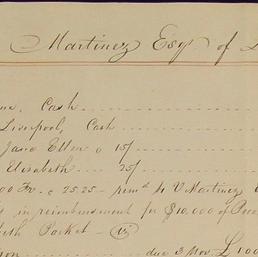 Martinez Esqr of
Cash
Liverpool, Cash
Jane Ellen 15/
Elizabeth 25/
00 Fr. @ 25.25 - V Martinez
in reimbursement for $10,000 of
Packet
due 3 Nov. £100